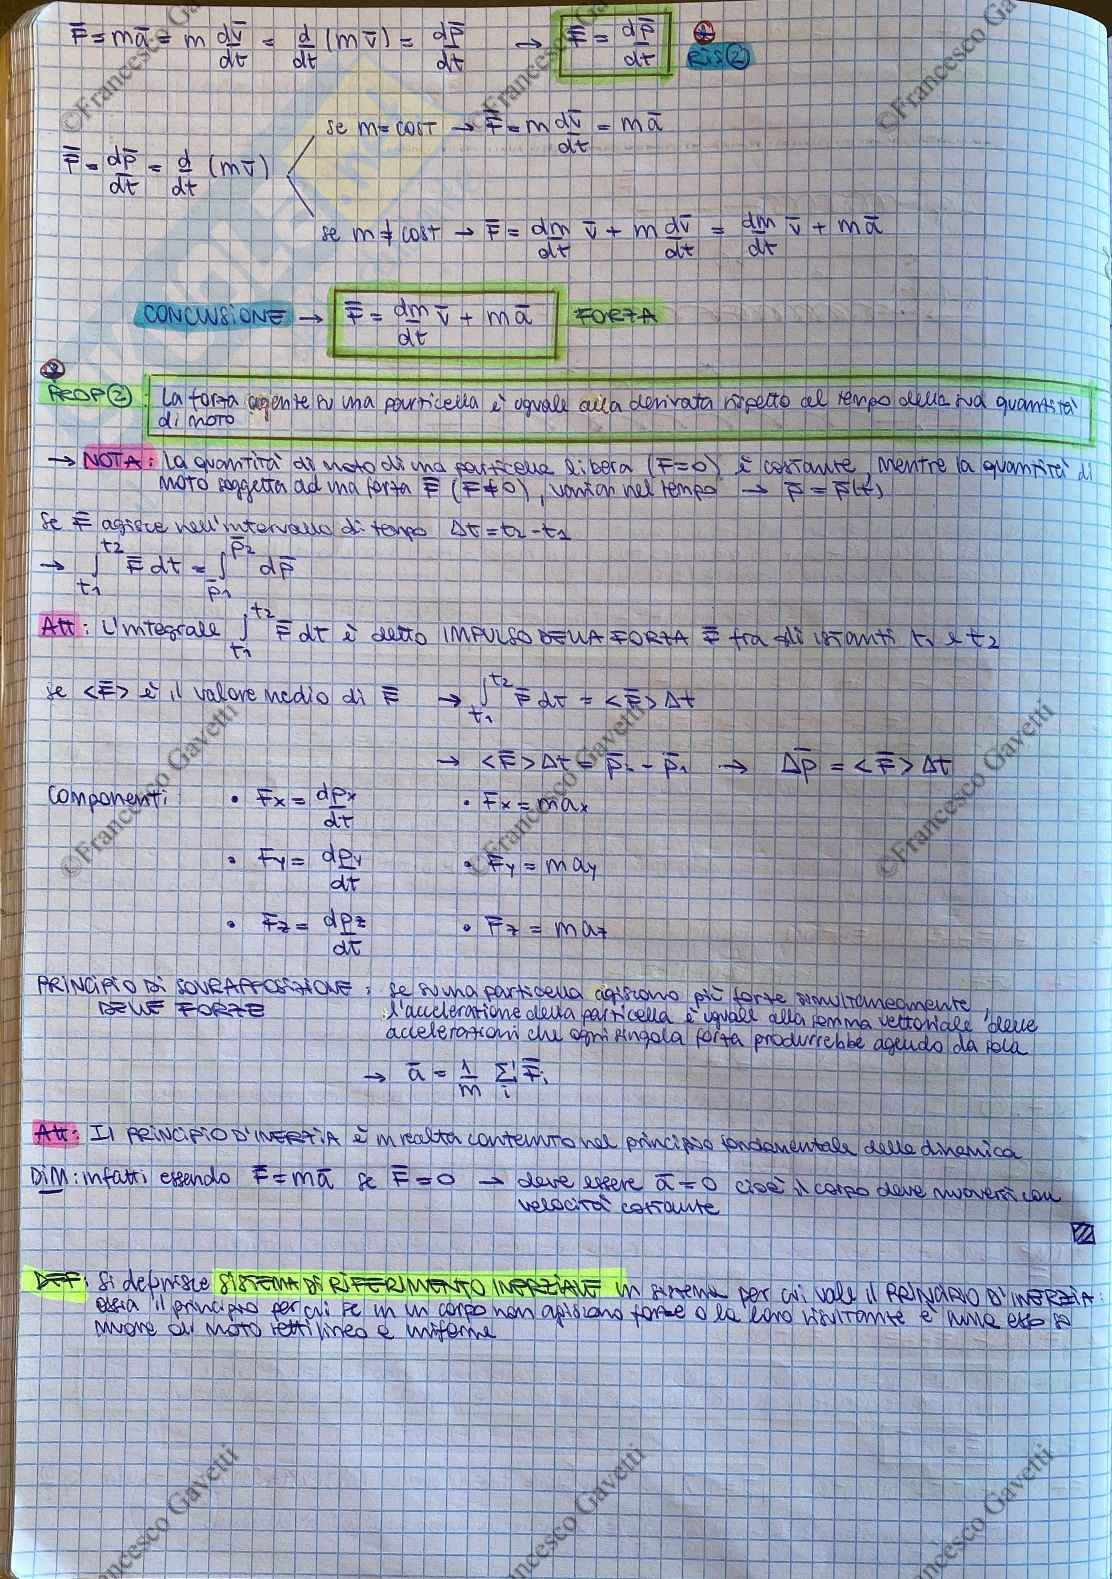 F̄ = mā = m dv̄/dt = d/dt (mv̄) = dp̄/dt → F̄ = dp̄/dt RIS②
se m = cost → F̄ = m dv̄/dt = mā
F̄ = dp̄/dt = d/dt (mv̄)
se m ≠ cost → F̄ = dm/dt v̄ + m dv̄/dt = dm/dt v̄ + mā
CONCLUSIONE → F̄ = dm/dt v̄ + mā FORZA
PROP②: La forza agente su una particella è uguale alla derivata rispetto al tempo della sua quantità
di moto
→ NOTA: La quantità di moto di una particella libera (F̄=0) è costante, mentre la quantità di
moto soggetta ad una forza F̄ (F̄≠0), varia nel tempo → p̄ = p̄(t)
Se F̄ agisce nell'intervallo di tempo Δt = t₂ - t₁
→ ∫t₁t₂ F̄ dt = ∫p̄₁p̄₂ dp̄
Att: L'integrale ∫t₁t₂ F̄ dt è detto IMPULSO DELLA FORZA F̄ fra gli istanti t₁ e t₂
se <F̄> è il valore medio di F̄ → ∫t₁t₂ F̄ dt = <F̄> Δt
→ <F̄> Δt = p̄₂ - p̄₁ → Δp̄ = <F̄> Δt
Componenti • Fx = dpx/dt • Fx = max
• Fy = dpy/dt • Fy = may
• Fz = dpz/dt • Fz = maz
PRINCIPIO DI SOVRAPPOSIZIONE: se su una particella agiscono più forze simultaneamente,
DELLE FORZE l'accelerazione della particella è uguale alla somma vettoriale delle
accelerazioni che ogni singola forza produrrebbe agendo da sola
→ ā = 1/m Σi F̄i
Att: Il PRINCIPIO D'INERZIA è in realtà contenuto nel principio fondamentale della dinamica
DIM: infatti essendo F̄ = mā se F̄ = 0 → deve essere ā = 0 cioè il corpo deve muoversi con
velocità costante
DEF: Si definisce SISTEMA DI RIFERIMENTO INERZIALE un sistema per cui vale il PRINCIPIO D'INERZIA:
ossia il principio per cui se in un corpo non agiscono forze o la loro risultante è nulla esso si
muove di moto rettilineo e uniforme
©Francesco Gavetti